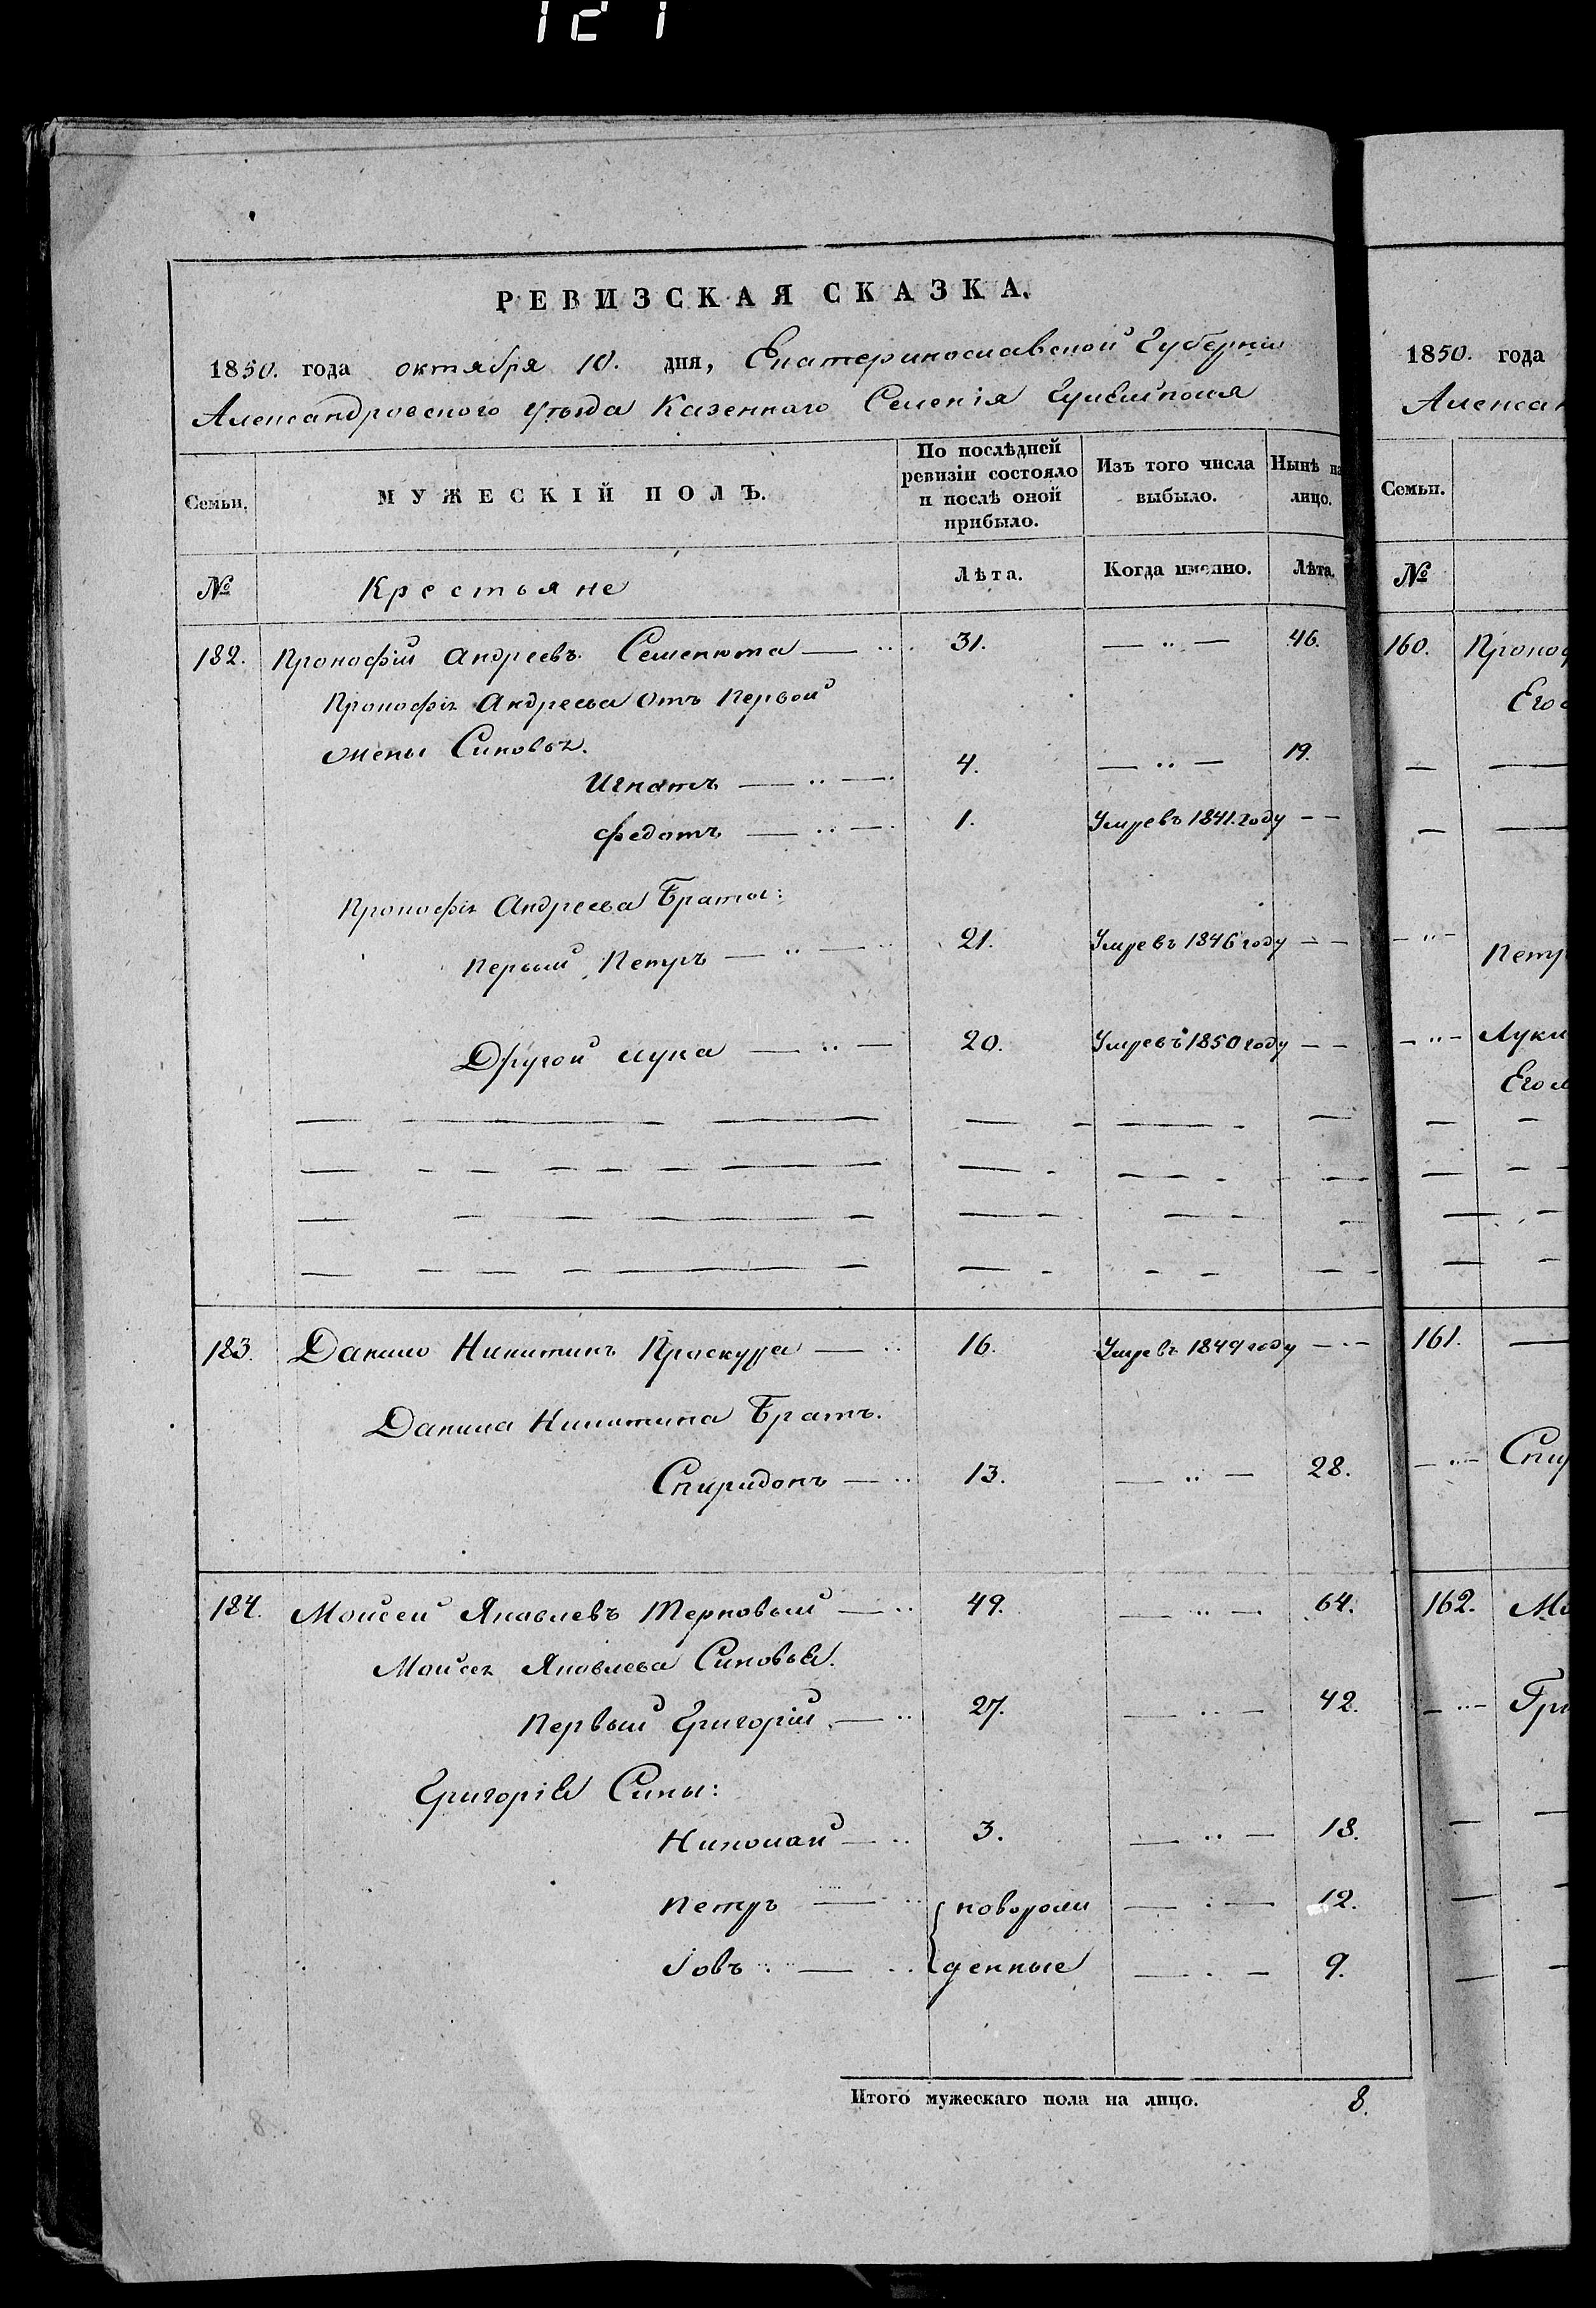 121
РЕВИЗСКАЯ СКАЗКА.
1850. года октября 10. дня, Екатеринославской Губерніи
Александровского уѣзда Казенного Селенія Гуляйполя
Семьи. МУЖЕСКІЙ ПОЛЪ. По послѣдней ревизіи состояло и послѣ оной прибыло. Изъ того числа выбыло. Нынѣ на лицо.
№ Крестьяне Лѣта. Когда именно. Лѣта.
182. Прокофій Андреевъ Семенюта — 31. — 46.
Прокофія Андреева отъ первой
жены Синовья.
Игнатъ — 4. — 19.
Федотъ — 1. Умре въ 1841. году — —
Прокофія Андреева Браты:
первый Петръ — 21. Умре въ 1846 году — —
Другой Лука — 20. Умре въ 1850 году — —
183. Данило Никитинъ Проскура — 16. Умре въ 1849 году — —
Данила Никитина Братъ.
Спиридонъ — 13. — 28.
184. Моисей Яковлевъ Терновый — 49. — 64.
Моисея Яковлева Синовья.
Первый Григорій — 27. — 42.
Григорія Сины:
Николай — 3. — 18.
Петръ — новорож — 12.
Іовъ — денные — 9.
Итого мужескаго пола на лицо. 8.
1850. года
Алексан
Семьи.
№
160. Прокоф
Его
Петр
Луки
Его
161.
Спир
162. Мо
Гри